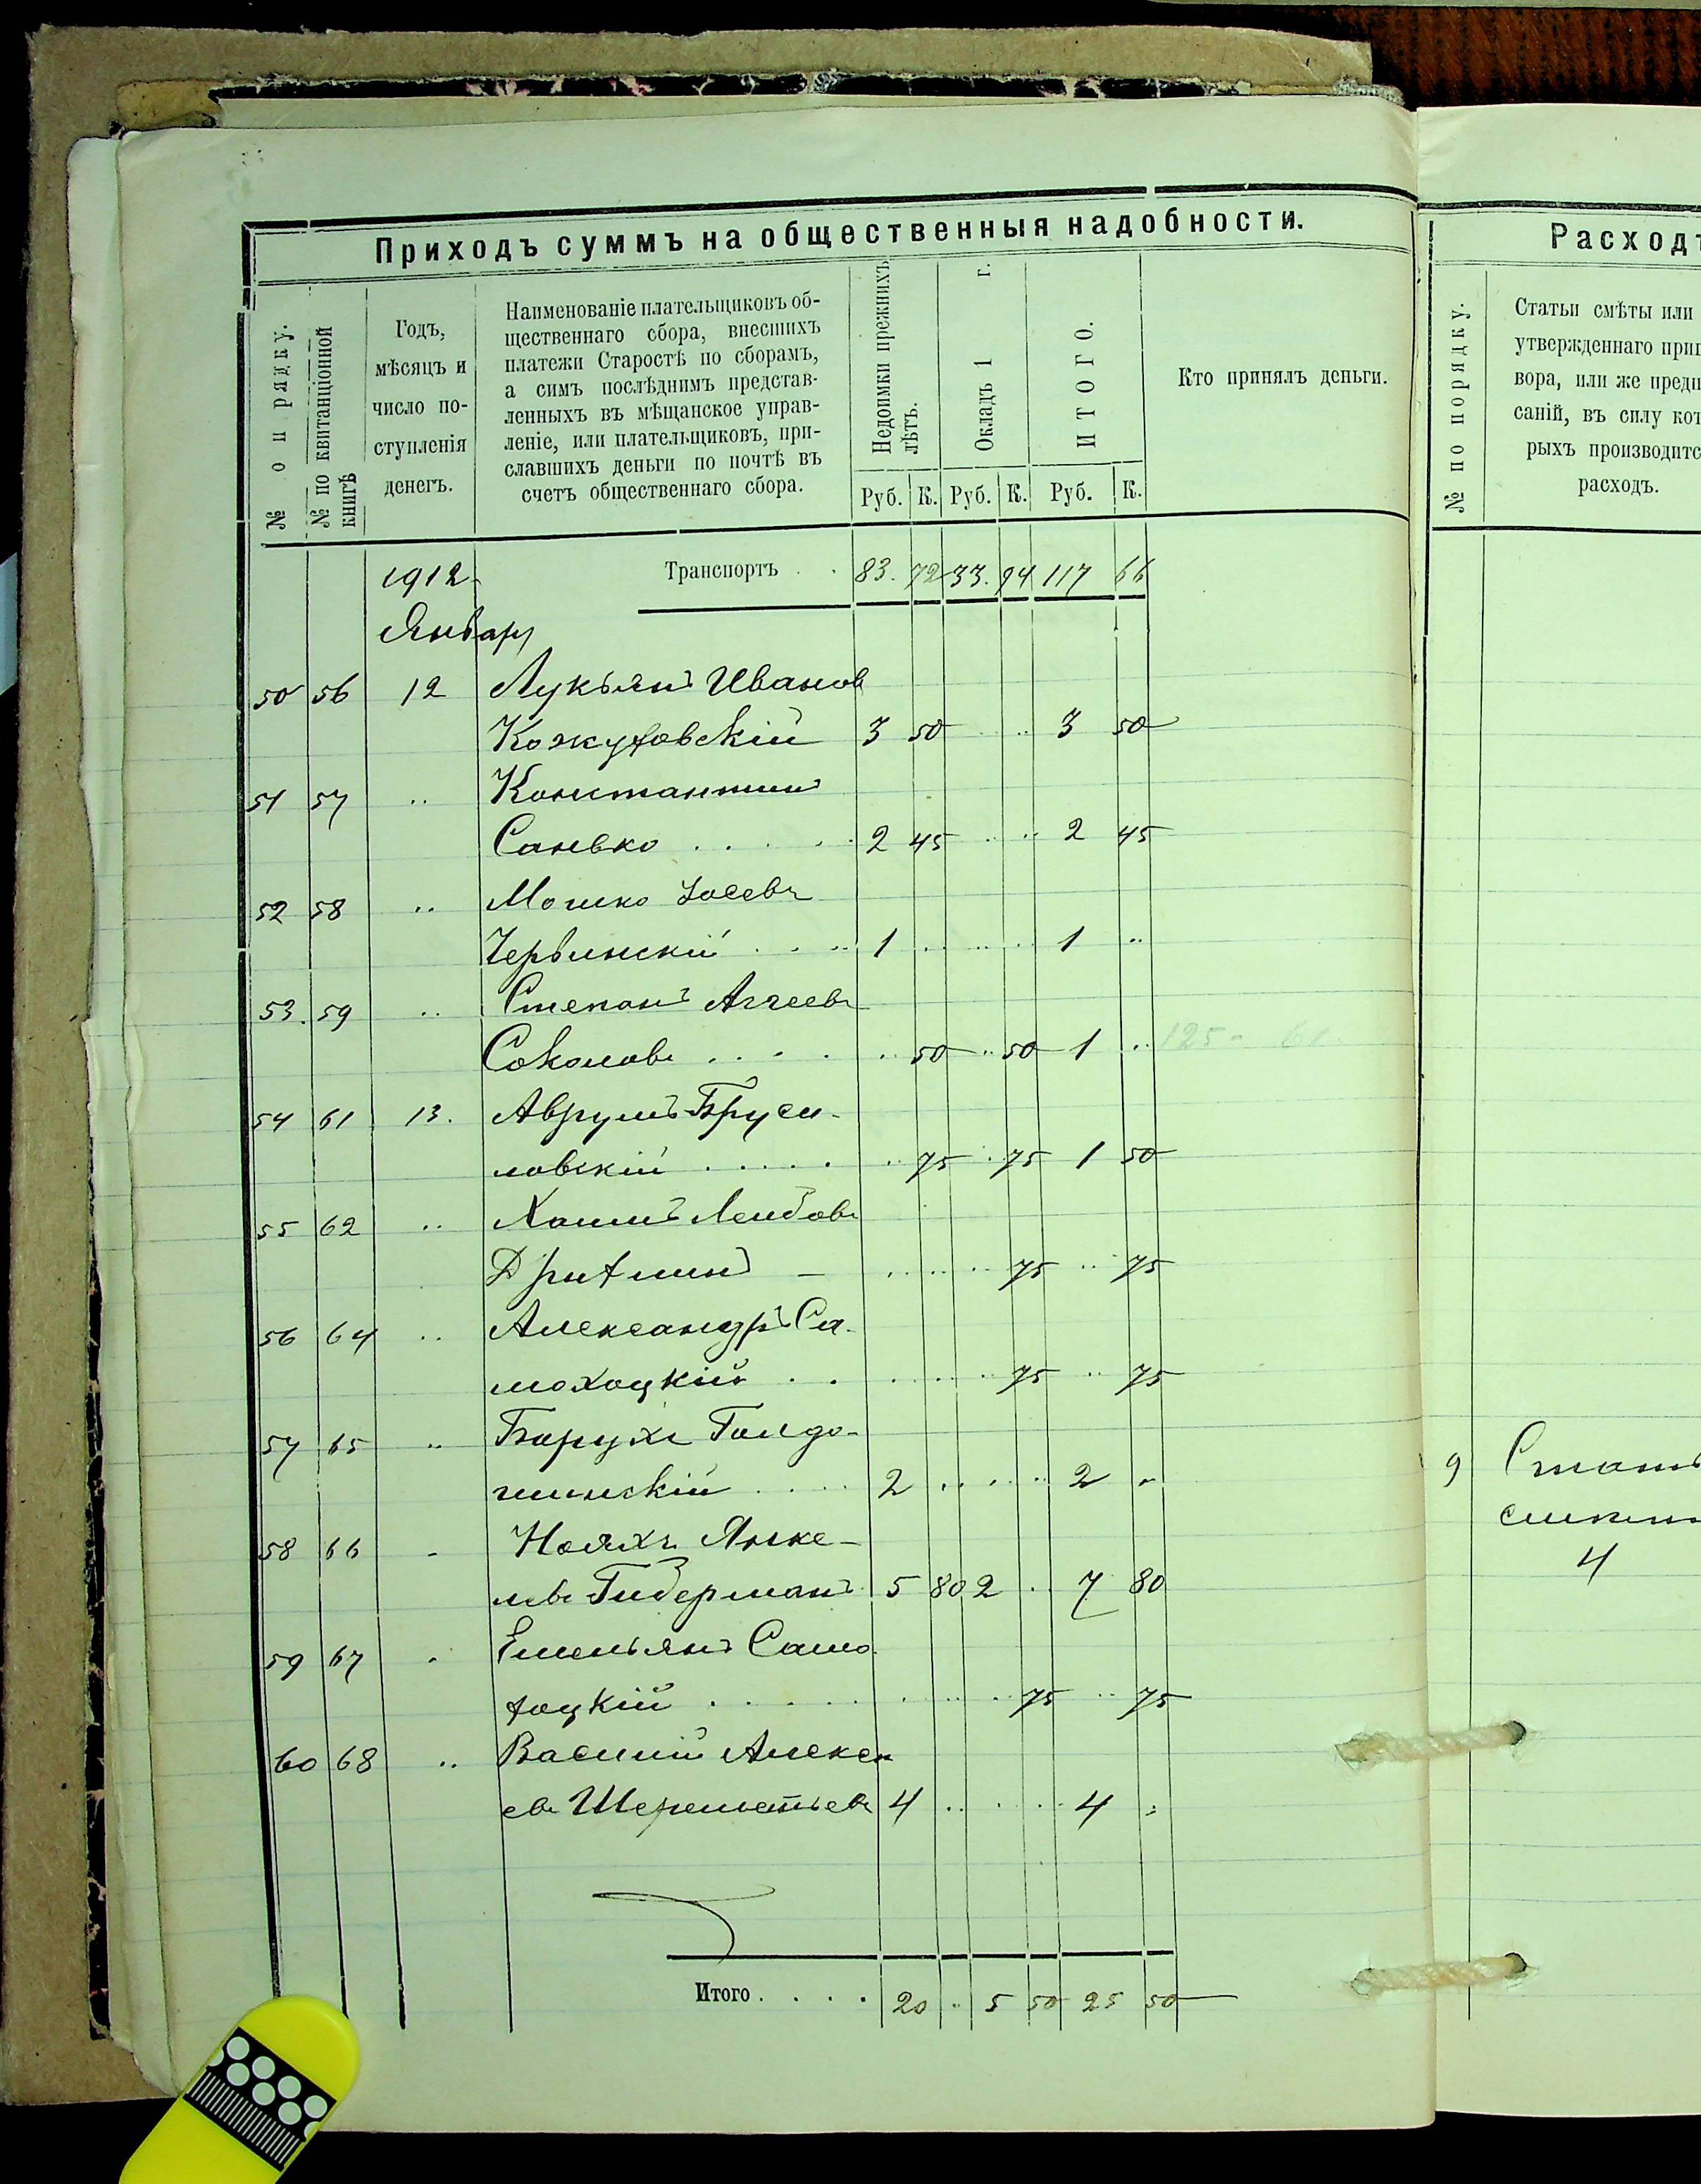 Приходъ суммъ на общественныя надобности.
№ п о рядку.
№ по квитанціонной
книгѣ
Годъ,
мѣсяцъ и
число по-
ступленія
денегъ.
Наименованіе плательщиковъ об-
щественнаго сбора, внесшихъ
платежи Старостѣ по сборамъ,
а симъ послѣднимъ представ-
ленныхъ въ мѣщанское управ-
леніе, или плательщиковъ, при-
славшихъ деньги по почтѣ въ
счетъ общественнаго сбора.
Недоимки прежнихъ
лѣтъ.
Окладъ 1 г.
И Т О Г О.
Руб. К. Руб. К. Руб. К.
Кто принялъ деньги.
1912 Транспортъ . . 83. 72 33. 94 117 66
Январ
50 56 12 Лукьянъ Иванов
Кожуховскій 3 50 .. 3 50
51 57 .. Константинъ
Санько . . . . 2 45 .. .. 2 45
52 58 .. Мошко Іосевъ
Червинскій . . .. 1 .. .. 1 ..
53. 59 .. Степанъ Аггеевъ
Соколовъ . . . . .. 50 .. 50 1 .. 125 - 61
54 61 13. Аврумъ Бруси-
ловскій . . . . . .. 75 .. 75 1 50
55 62 .. Хаимъ Лейбовъ
.. .. 75 .. 75
56 64 .. Александръ Са-
мохоцкій . . .. .. 75 .. 75
57 65 .. Борухъ Голдо-
шинскій . . . . 2 .. .. 2 ..
58 66 - Ноахъ Янке-
левъ Гиберманъ 5 80 2 .. 7 80
59 67 . Емельянъ Само
хоцкій . . . . . .. .. 75 .. 75
60 68 .. Василій Алексе
евъ Шереметьевъ 4 .. .. 4 :
Итого . . . . 20 .. 5 50 25 50
Расходъ
№ по порядку.
Статьи смѣты или
утвержденнаго приг
вора, или же предп
саній, въ силу кот
рыхъ производитс
расходъ.
9
4